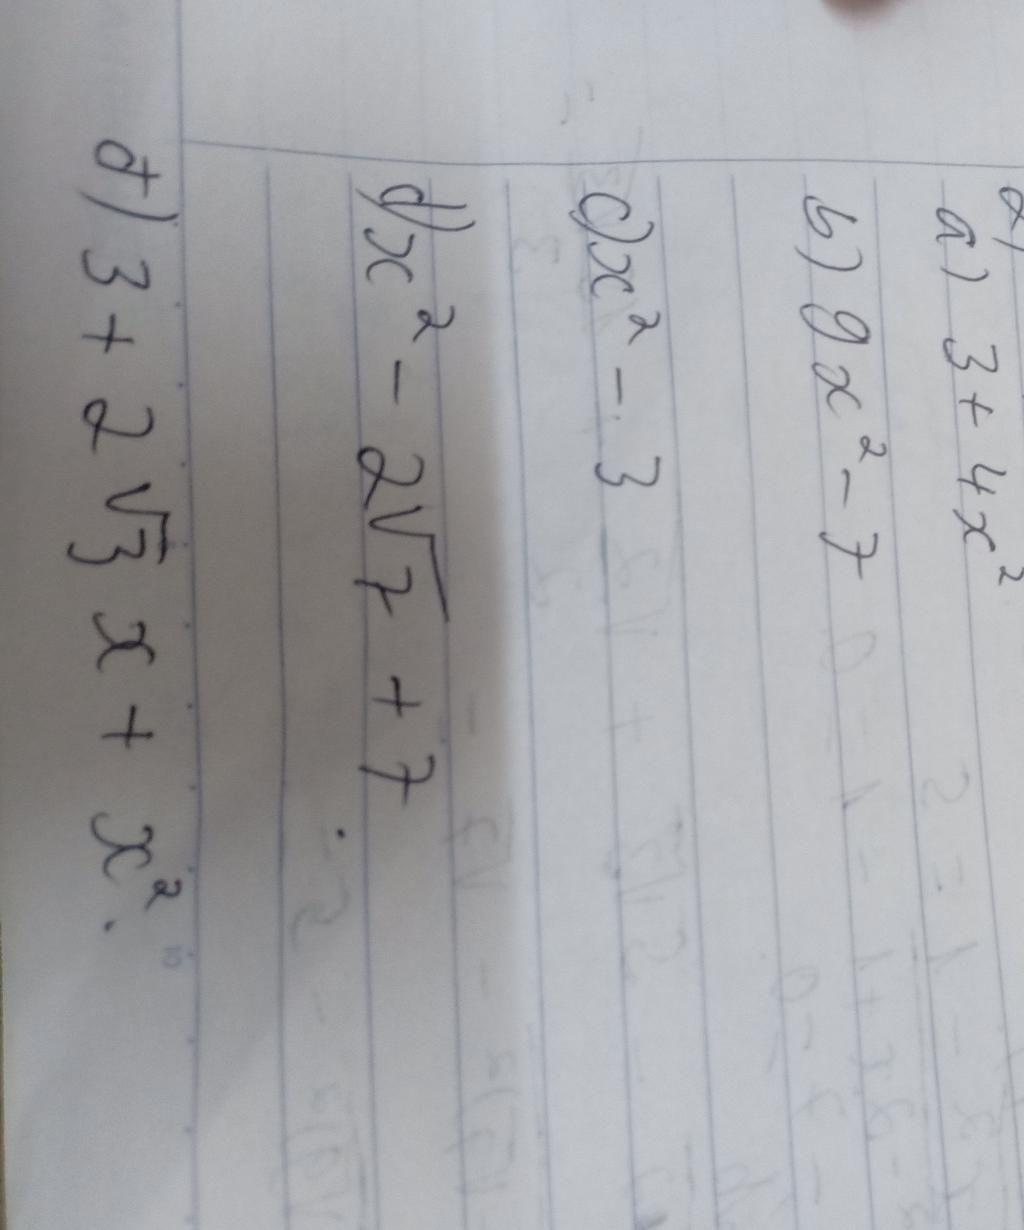 2)
a) 3 + 4x²
b) 9x² - 7
c) x² - 3
d) x² - 2√7 + 7
đ) 3 + 2√3 x + x².